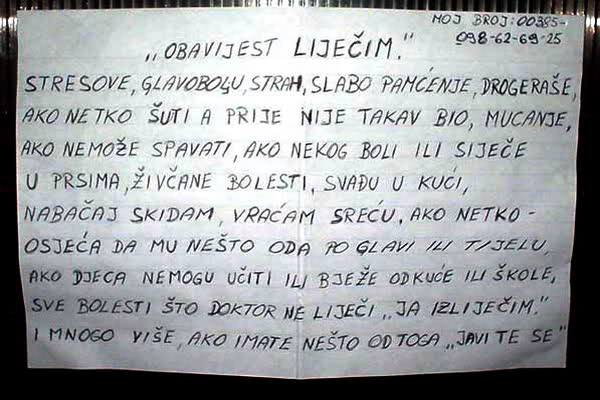 MOJ BROJ: 00385-
098-62-69-25
„OBAVIJEST LIJEČIM."
STRESOVE, GLAVOBOLJU, STRAH, SLABO PAMĆENJE, DROGERAŠE,
AKO NETKO ŠUTI A PRIJE NIJE TAKAV BIO, MUCANJE,
AKO NEMOŽE SPAVATI, AKO NEKOG BOLI ILI SIJEČE
U PRSIMA, ŽIVČANE BOLESTI, SVAĐU U KUĆI,
NABAČAJ SKIDAM, VRAĆAM SREĆU, AKO NETKO-
OSJEĆA DA MU NEŠTO ODA PO GLAVI ILI TIJELU,
AKO DJECA NEMOGU UČITI ILI BJEŽE OD KUĆE ILI ŠKOLE,
SVE BOLESTI ŠTO DOKTOR NE LIJEČI „JA IZLIJEČIM."
I MNOGO VIŠE, AKO IMATE NEŠTO OD TOGA „JAVITE SE"